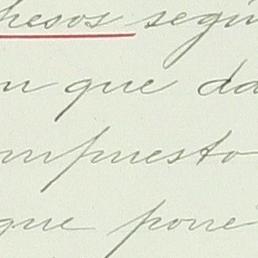 pesos según
n que da
mpuesto
que pone